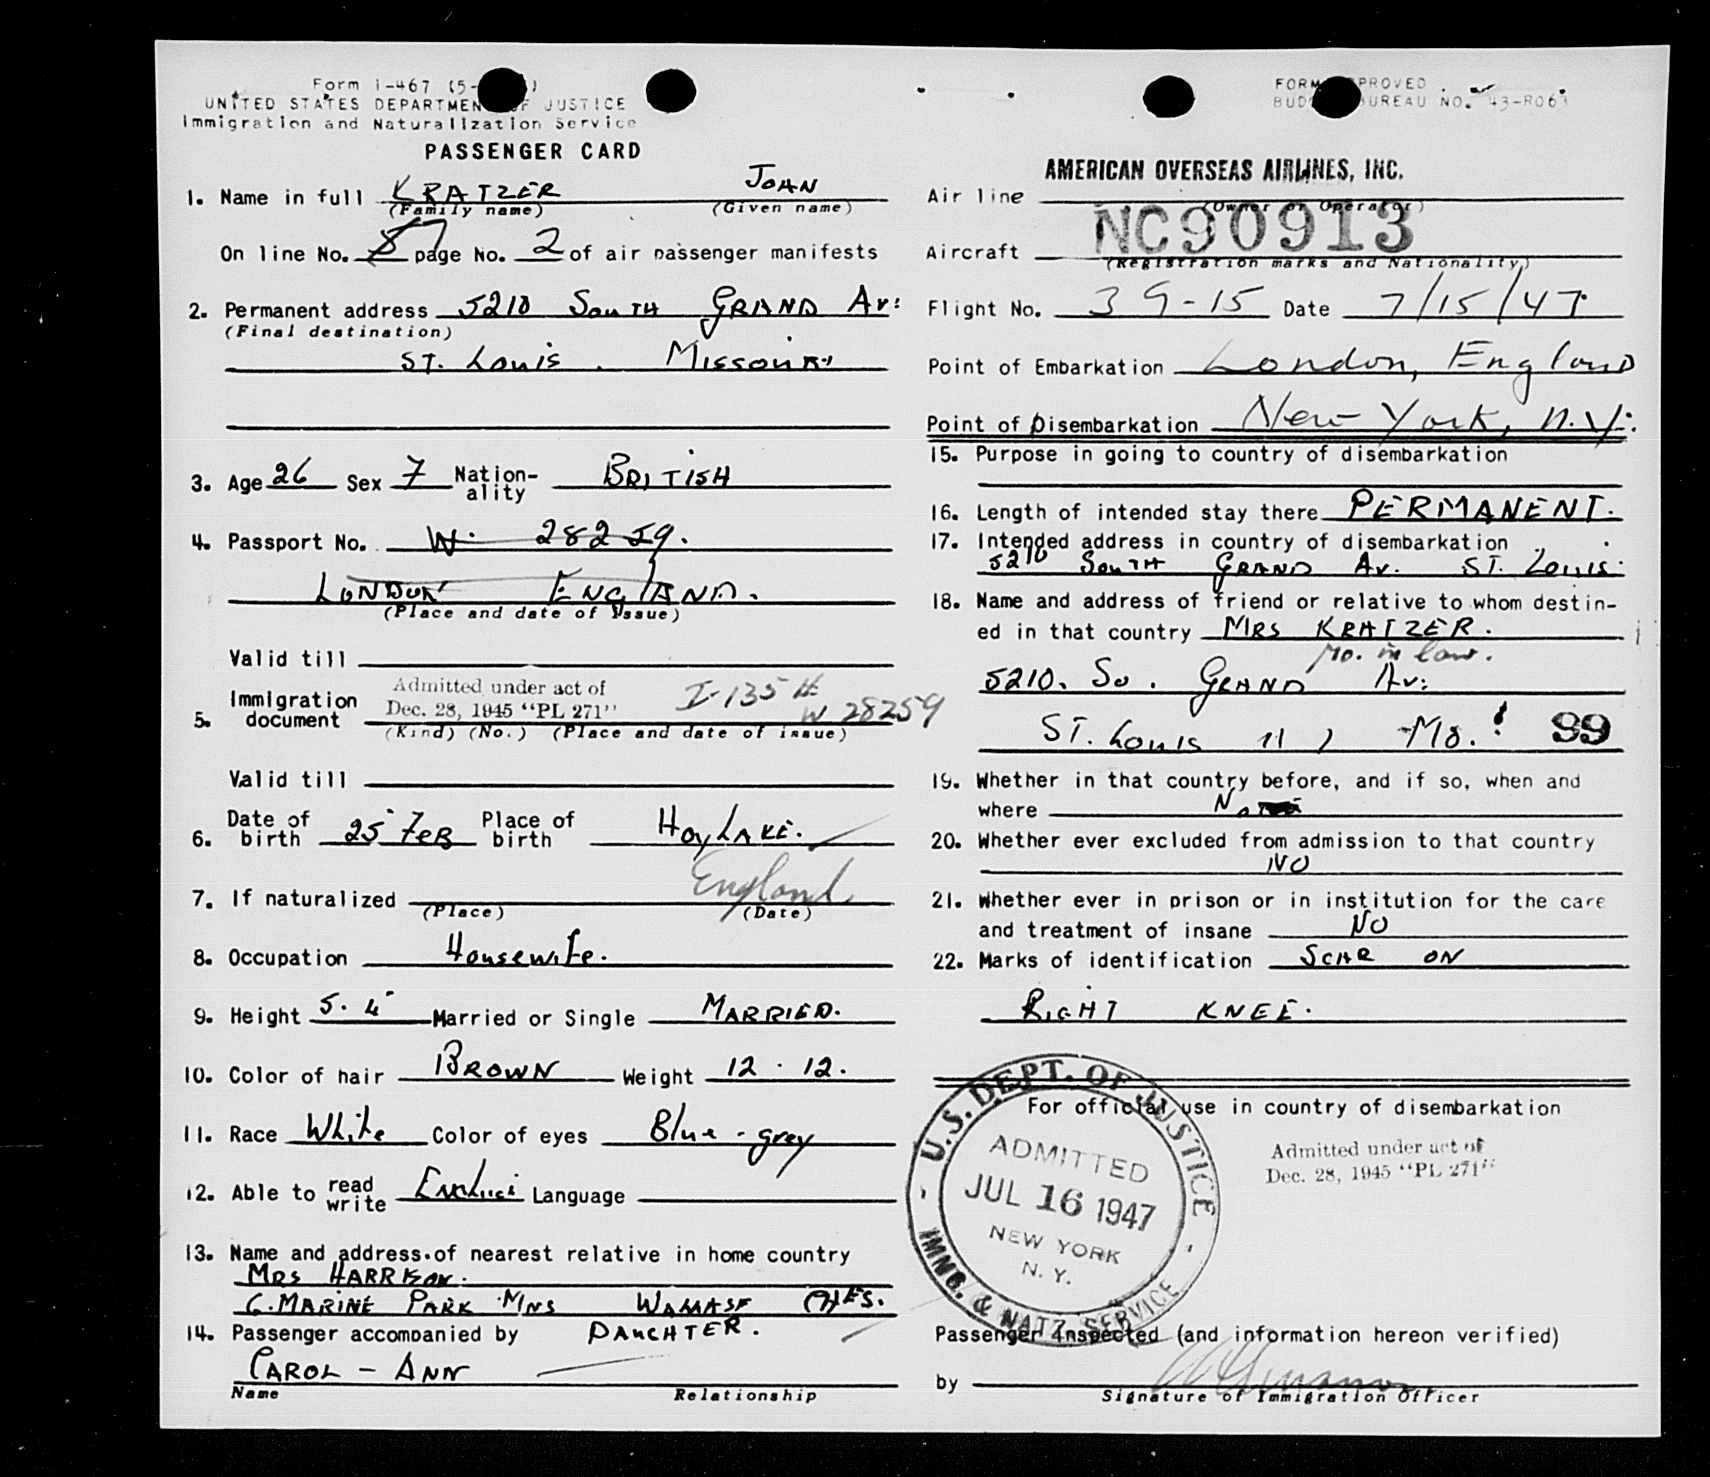 Form I-467 (5-
UNITED STATES DEPARTMENT OF JUSTICE
Immigration and Naturalization Service
PASSENGER CARD
1. Name in full KRATZER JOHN
(Family name) (Given name)
On line No. 8 page No. 2 of air passenger manifests
2. Permanent address 5210 SOUTH GRAND AV:
(Final destination)
ST. LOUIS. MISSOURI
3. Age 26 Sex F Nation-ality BRITISH
4. Passport No. W. 28259.
LONDON ENGLAND.
(Place and date of issue)
Valid till
5. Immigration document Admitted under act of
Dec. 28, 1945 "PL 271" I-135 # W 28259
(Kind) (No.) (Place and date of issue)
Valid till
6. Date of birth 25 FEB Place of birth HOYLAKE.
England
7. If naturalized
(Place) (Date)
8. Occupation Housewife.
9. Height 5.4 Married or Single MARRIED.
10. Color of hair BROWN Weight 12 . 12.
11. Race White Color of eyes Blue-grey
12. Able to read write Language
13. Name and address of nearest relative in home country
MRS HARRISON.
6. MARINE PARK MNS CHES.
14. Passenger accompanied by DAUGHTER.
CAROL - ANN
Name Relationship
FORM APPROVED
BUDGET BUREAU NO. 43-R063
AMERICAN OVERSEAS AIRLINES, INC.
Air line
(Owner or Operator)
Aircraft NC90913
(Registration marks and Nationality)
Flight No. 39-15 Date 7/15/47
Point of Embarkation London, England
Point of Disembarkation New York, N.Y.
15. Purpose in going to country of disembarkation
16. Length of intended stay there PERMANENT.
17. Intended address in country of disembarkation
5210 SOUTH GRAND AV. ST. LOUIS.
18. Name and address of friend or relative to whom destin-
ed in that country MRS KRATZER.
Mo. in law.
5210. SO. GRAND AV:
ST. LOUIS 11, MO. 99
19. Whether in that country before, and if so, when and
where
20. Whether ever excluded from admission to that country
NO
21. Whether ever in prison or in institution for the care
and treatment of insane NO
22. Marks of identification SCAR ON
RIGHT KNEE.
For official use in country of disembarkation
Admitted under act of
Dec. 28, 1945 "PL 271"
U.S. DEPT. OF JUSTICE
ADMITTED
JUL 16 1947
NEW YORK
N. Y.
IMMG. & NATZ. SERVICE
Passenger inspected (and information hereon verified)
by
Signature of Immigration Officer